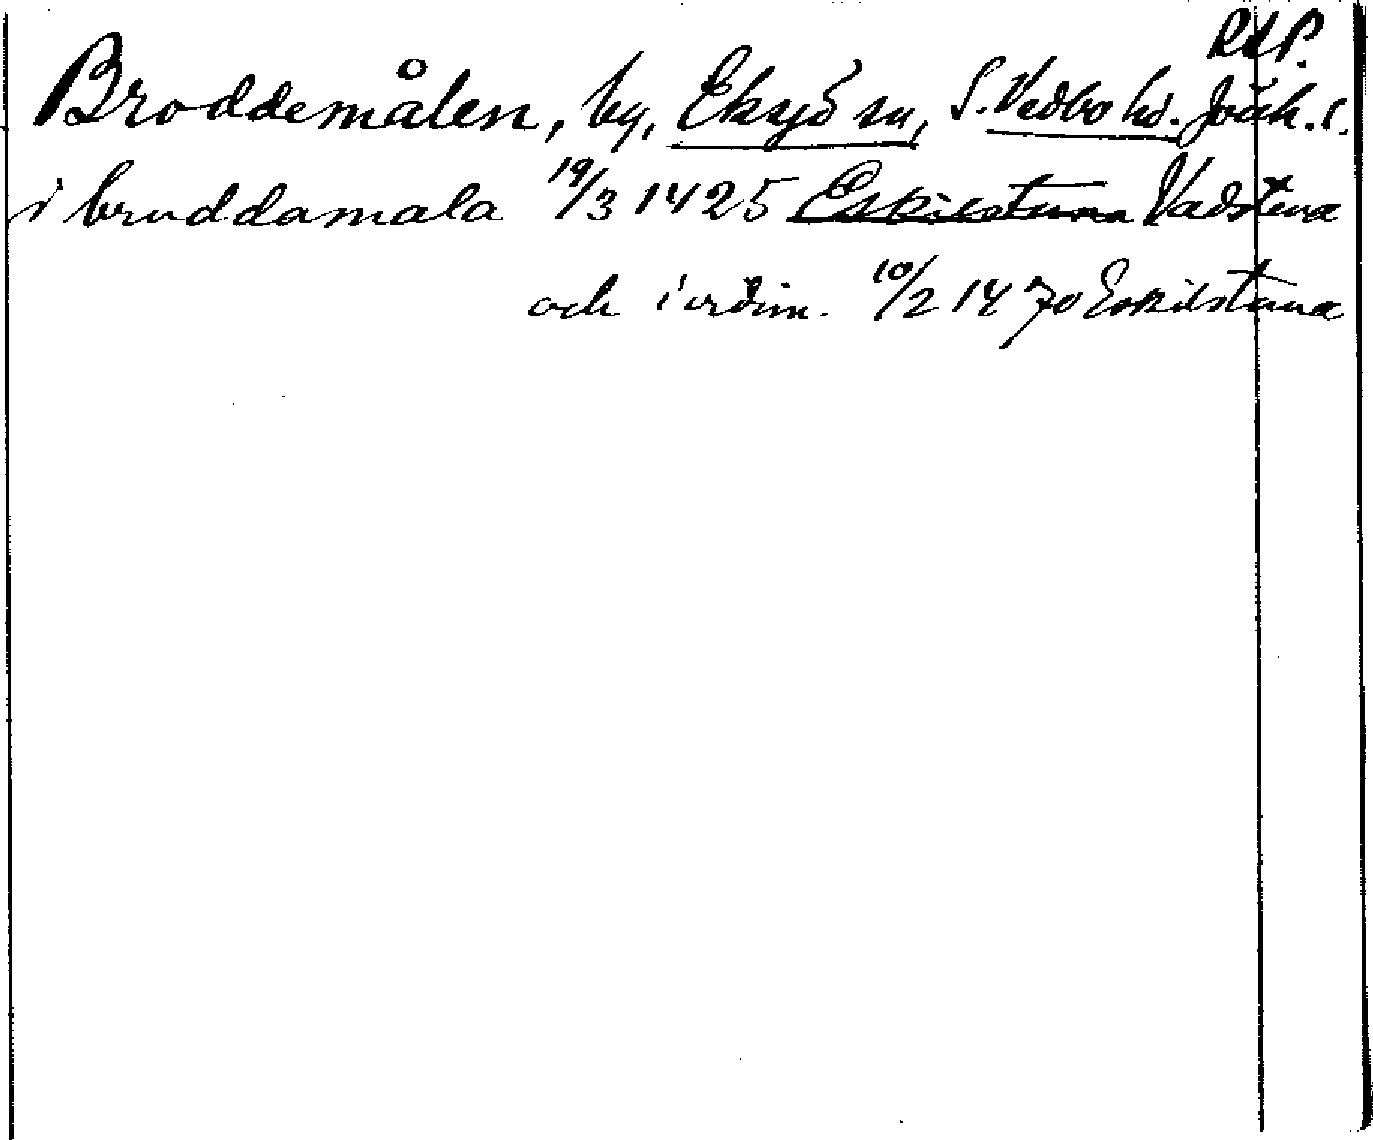 RAP.
Broddemålen, by, Eksjö sn, S. Vedbo hd. Jönk. l.
i bruddamala 19/3 1425 Eskilstuna Vadstena
och i vidim. 10/2 1470 Eskilstuna